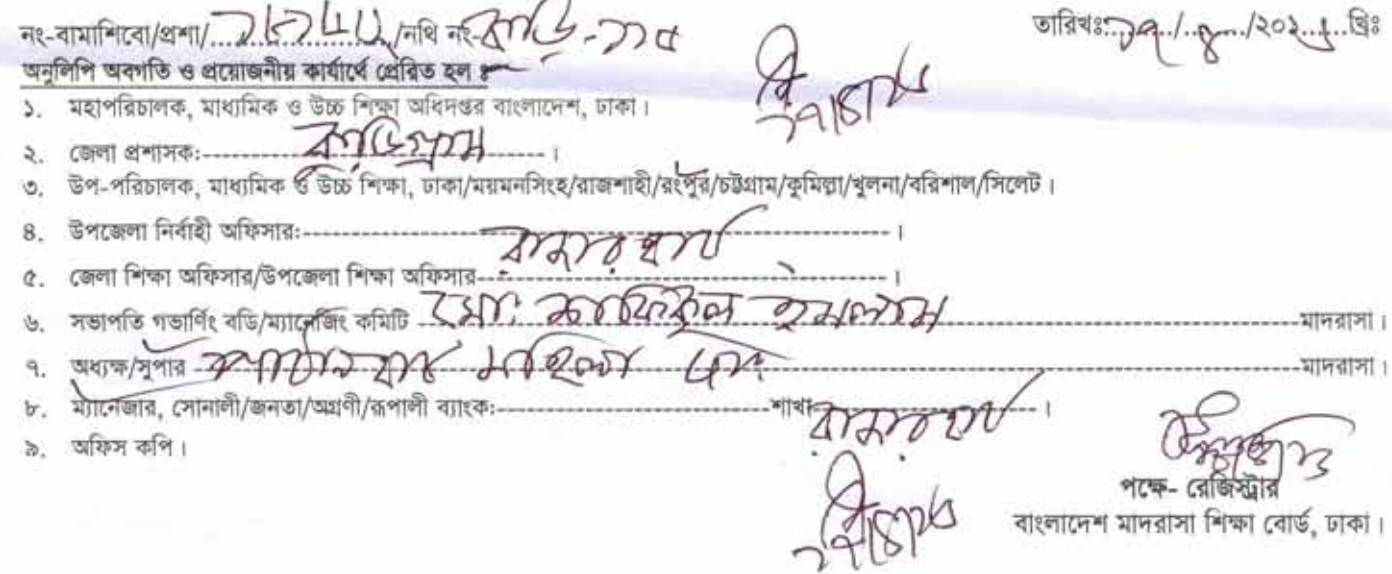 নং-বামাশিবো/প্রশা/............/নথি নং- কুড়ি-১১৫ তারিখঃ ১৭/৪/২০১ খ্রিঃ
অনুলিপি অবগতি ও প্রয়োজনীয় কার্যার্থে প্রেরিত হল ঃ
১. মহাপরিচালক, মাধ্যমিক ও উচ্চ শিক্ষা অধিদপ্তর বাংলাদেশ, ঢাকা।
২. জেলা প্রশাসক:- কুড়িগ্রাম ।
৩. উপ-পরিচালক, মাধ্যমিক ও উচ্চ শিক্ষা, ঢাকা/ময়মনসিংহ/রাজশাহী/রংপুর/চট্টগ্রাম/কুমিল্লা/খুলনা/বরিশাল/সিলেট।
৪. উপজেলা নির্বাহী অফিসার:- ।
রাজারহাট
৫. জেলা শিক্ষা অফিসার/উপজেলা শিক্ষা অফিসার- ।
৬. সভাপতি গভার্ণিং বডি/ম্যানেজিং কমিটি মো: শফিকুল ইসলাম মাদরাসা।
৭. অধ্যক্ষ/সুপার পাঠানহাট মহিলা মাদরাসা।
৮. ম্যানেজার, সোনালী/জনতা/অগ্রণী/রূপালী ব্যাংক:- শাখা রাজারহাট ।
৯. অফিস কপি।
পক্ষে- রেজিস্ট্রার
বাংলাদেশ মাদরাসা শিক্ষা বোর্ড, ঢাকা।